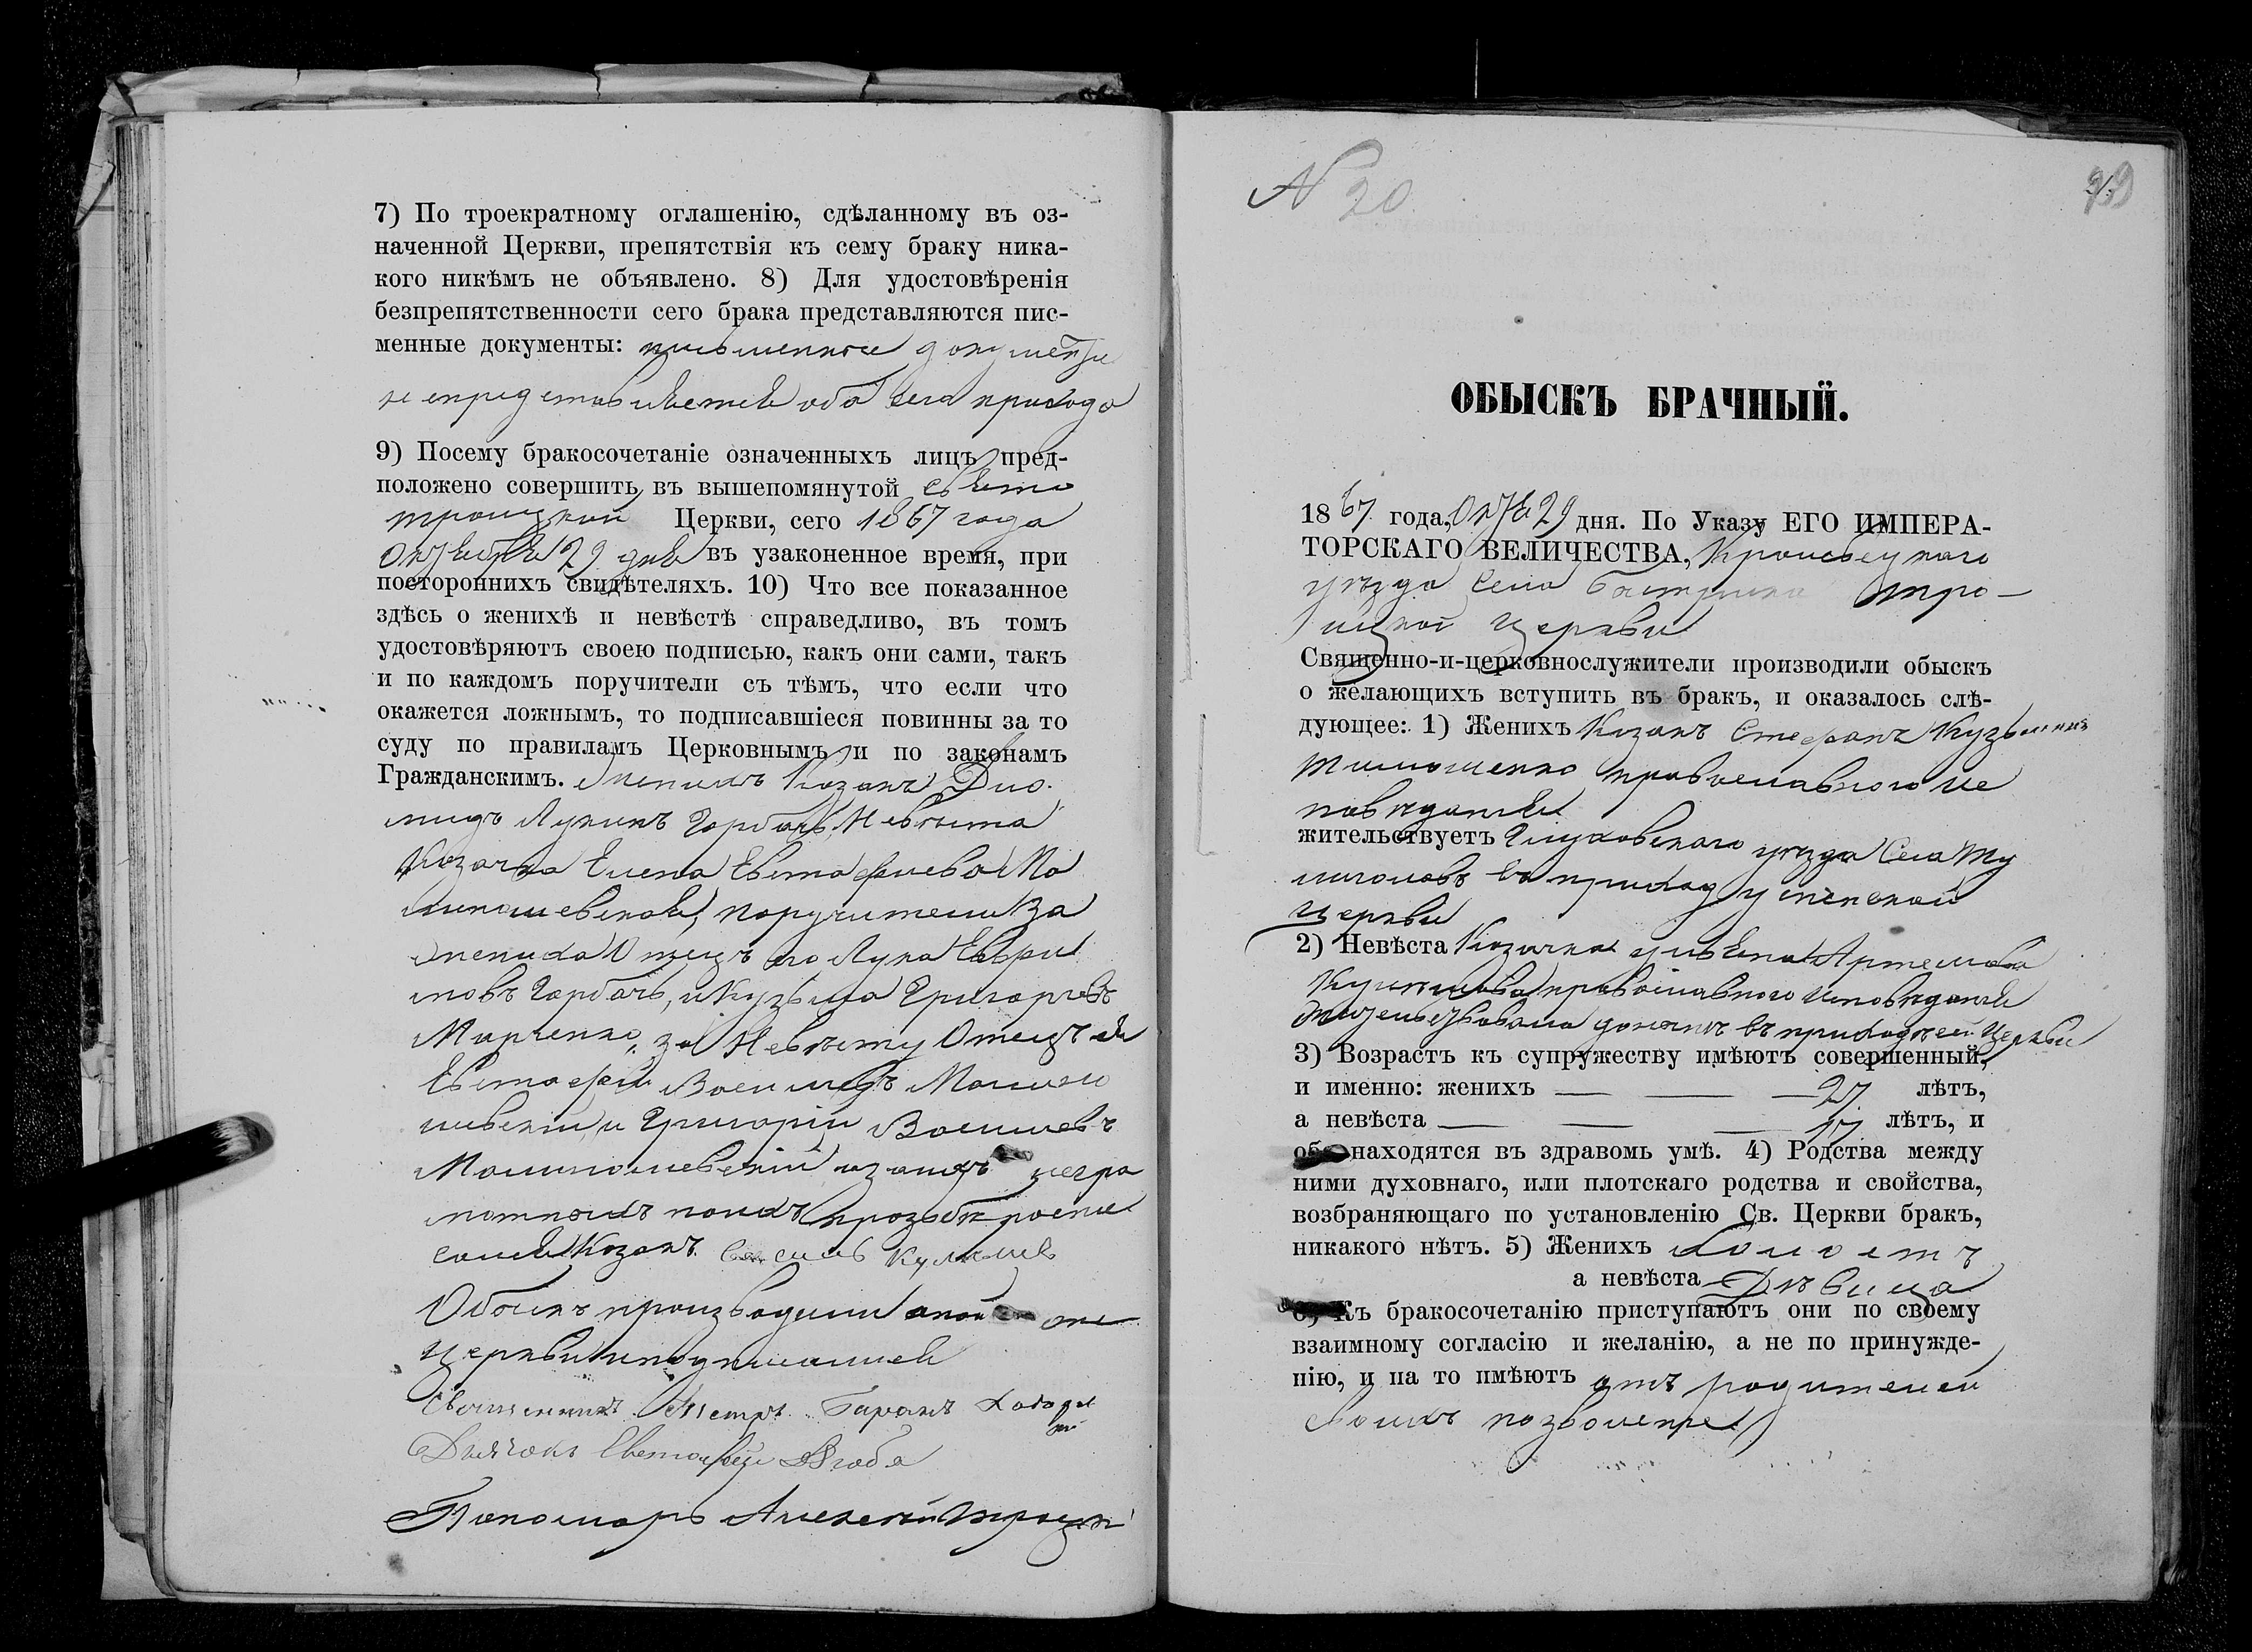 7) По троекратному оглашенію, сдѣланному въ оз-
наченной Церкви, препятствія къ сему браку ника-
кого никѣмъ не объявлено. 8) Для удостовѣренія
безпрепятственности сего брака представляются пис-
менные документы: письменные документы
оба сего прихода
9) Посему бракосочетаніе означенныхъ лицъ пред-
положено совершить въ вышепомянутой Свято
троицкой Церкви, сего 1867 года
Октября 29 дня въ узаконенное время, при
постороннихъ свидѣтеляхъ. 10) Что все показанное
здѣсь о женихѣ и невѣстѣ справедливо, въ томъ
удостовѣряютъ своею подписью, какъ они сами, такъ
и по каждомъ поручители съ тѣмъ, что если что
окажется ложнымъ, то подписавшіеся повинны за то
суду по правиламъ Церковнымъ и по законамъ
Гражданскимъ. Женихъ Козакъ Дио
мидъ Лукинъ Горбачь, Невѣста
Козачка Елена Евстафиева Ма
поручители за
жениха Отецъ его Лука Еври
мовъ Горбачь, и Кузьма Григорьевъ
Марченко, за Невѣсту Отецъ ея
Евстафій Васильевъ Малишо
шевскій, и Григорій Васильевъ
негра
мотныхъ по ихъ прозбѣ роспи
сался Козакъ
Обыскъ производили
церкви и подписались
Священникъ Петръ
Дьячокъ Евстафий
Пономарь Алексей Троцкі
N 20
ОБЫСКЪ БРАЧНЫЙ.
1867 года, Октя 29 дня. По Указу ЕГО ИМПЕРА-
ТОРСКАГО ВЕЛИЧЕСТВА, Кролевецкаго
уѣзда Села Быстрика Тро-
ицкой Церкви
Священно-и-церковнослужители производили обыскъ
о желающихъ вступить въ бракъ, и оказалось слѣ-
дующее: 1) Женихъ Козакъ Стефанъ Кузьминъ
Тимошенко православного ис
повѣданія
жительствуетъ Глуховскаго уѣзда Села Ту
лиголовъ въ приход Успенской
Церкви
2) Невѣста Козачка Артемова
православного исповѣданія
въ приходѣ сей Церкви
3) Возрастъ къ супружеству имѣютъ совершенный,
и именно: женихъ — — — 27 лѣтъ,
а невѣста — — — 17 лѣтъ, и
оба находятся въ здравомъ умѣ. 4) Родства между
ними духовнаго, или плотскаго родства и свойства,
возбраняющаго по установленію Св. Церкви бракъ,
никакого нѣтъ. 5) Женихъ холостъ
а невѣста Дѣвица
6) Къ бракосочетанію приступаютъ они по своему
взаимному согласію и желанію, а не по принужде-
нію, и на то имѣютъ отъ родителей
своихъ позволенре